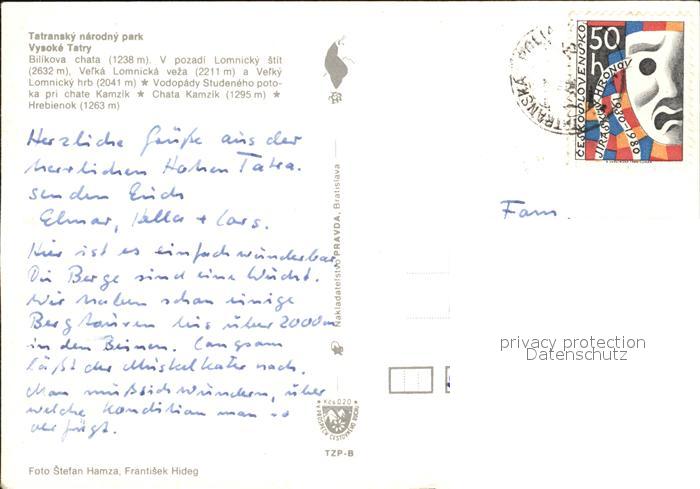 Tatranský národný park
Vysoké Tatry
Bilíkova chata (1238 m). V pozadí Lomnický štít
(2632 m), Veľká Lomnická veža (2211 m) a Veľký
Lomnický hrb (2041 m) ★ Vodopády Studeného poto-
ka pri chate Kamzík ★ Chata Kamzík (1295 m) ★
Hrebienok (1263 m)
Herzliche Grüße aus der
herrlichen Hohen Tatra.
senden Euch
Elmar, Hella + Lars.
Hier ist es einfach wunderbar.
Die Berge sind eine Wucht.
Wir haben schon einige
Bergtouren bis über 2000m
in den Beinen. Langsam
läßt der Muskelkater nach.
Man muß sich wundern, über
welche Kondition man so
verfügt.
Foto Štefan Hamza, František Hideg
Nakladateľstvo PRAVDA, Bratislava
Kčs 0,20
TZP-B
TATRANSKÁ
50
h
ČESKOSLOVENSKO
JIRÁSKŮV HRONOV
1930-1980
Fam.
privacy protection
Datenschutz